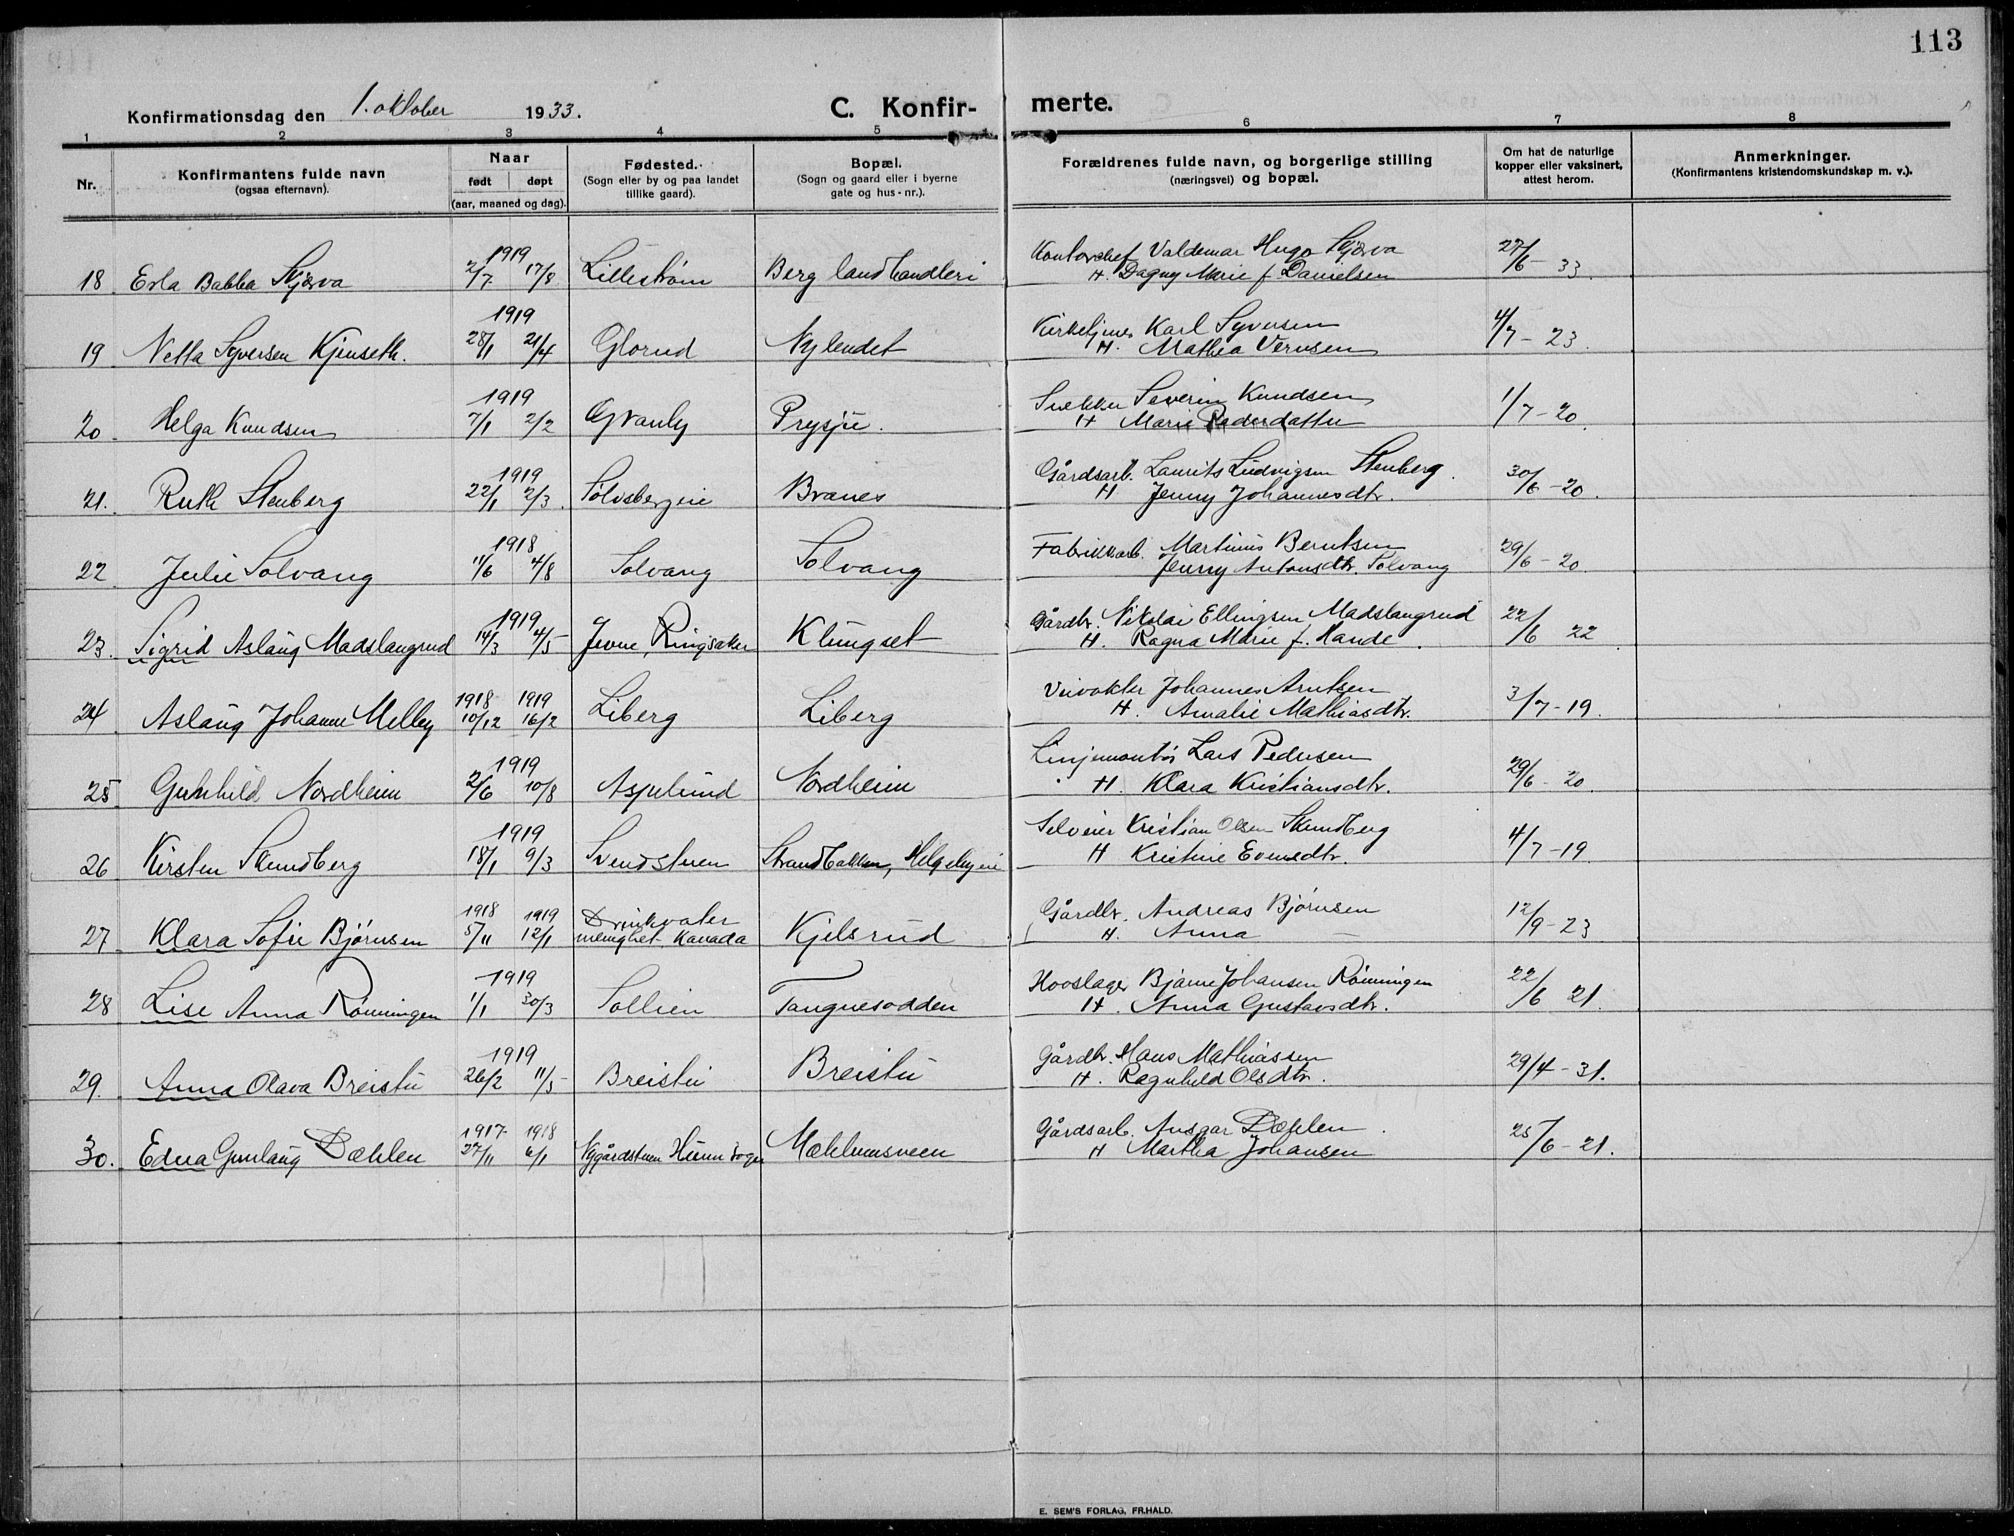 113
Konfirmationsdag den 1. oktober 1933. C. Konfir- merte.
1 2 3 4 5 6 7 8
Nr.
Konfirmantens fulde navn
(ogsaa efternavn).
Naar
født døpt
(aar, maaned og dag).
Fødested.
(Sogn eller by og paa landet
tillike gaard).
Bopæl.
(Sogn og gaard eller i byerne
gate og hus-nr.).
Forældrenes fulde navn, og borgerlige stilling
(næringsvei) og bopæl.
Om hat de naturlige
kopper eller vaksinert,
attest herom.
Anmerkninger.
(Konfirmantens kristendomskundskap m. v.).
1919 Kontorchef Valdemar Hugo Skjørva 27/6 - 33.
18. Erla Babba Skjørva 2/7 17/8 Lillestrøm Berg landhandleri H. Dagny Marie f. Danielsen
1919 Kirketjener Karl Syversen 4/7 - 23.
19 Netta Syversen Kjenseth. 28/1 21/4 Glorud Nylendet H. Mathea Iversen
1919 Snekker Severin Knudsen 1/7 - 20.
20. Helga Knudsen 7/1 2/2 Granly Prysje. H Marie Pedersdatter
1919 Gårdsarb. Laurits Ludvigsen Stenberg. 30/6 - 20.
21. Ruth Stenberg 22/1 2/3. Solvsbergeie Brænes H Jenny Johannesdtr.
1918 Fabrikkarb. Martinus Berntsen 29/6 - 20.
22 Julie Solvang 11/6 4/8 Solvang Solvang Jenny Antonsdtr. Solvang
1919 Gårdbr. Nikolai Ellingsen Madslangrud 22/6 22.
23. Sigrid Aslaug Madslangrud 14/3 4/5 Jevne, Ringsaker Klungset H. Ragna Marie f. Hande.
1918 1919 Veivokter Johannes Arntsen 3/7 - 19.
24 Aslaug Johanne Melby 10/12 16/2 Liberg Liberg H. Amalie Mathiasdtr.
1919 Linjemontør Lars Pedersen 29/6 - 20.
25 Gunhild Nordheim 2/6 10/8 Aspelund Nordheim H. Klara Kristiansdtr.
1919 Selveier Kristian Olsen Skundberg 4/7 - 19.
26 Kirsten Skundberg 18/1 9/3 Svendstuen Strandbakken, Helgebyeie H Kristine Evensdtr.
1918 1919 Drinkvater Gårdbr. Andreas Bjørnsen 12/9 - 23
27 Klara Sofie Bjørnsen 5/11 12/1 menighet Kanada Kjelsrud H. Anna —
1919 Hovslager Bjarne Johansen Rønningen 22/6 21.
28 Lise Anna Rønningen 1/1 30/3 Sollien Tangnesodden H. Anna Gustavsdtr.
1919 Gårdbr. Hans Mathiassen 29/4 - 31.
29. Anna Olava Breistu 26/2 11/5 Breistu Breistu H. Ragnhild Olsdtr.
1917 1918 Gårdsarb. Ansgar Dæhlen. 25/6 - 21.
30. Edna Gunlaug Dæhlen 27/11 6/1 Nygårdstuen Hunn sogn Mæhlumsveen H Martha Johansen
E. SEM'S FORLAG, FR.HALD.